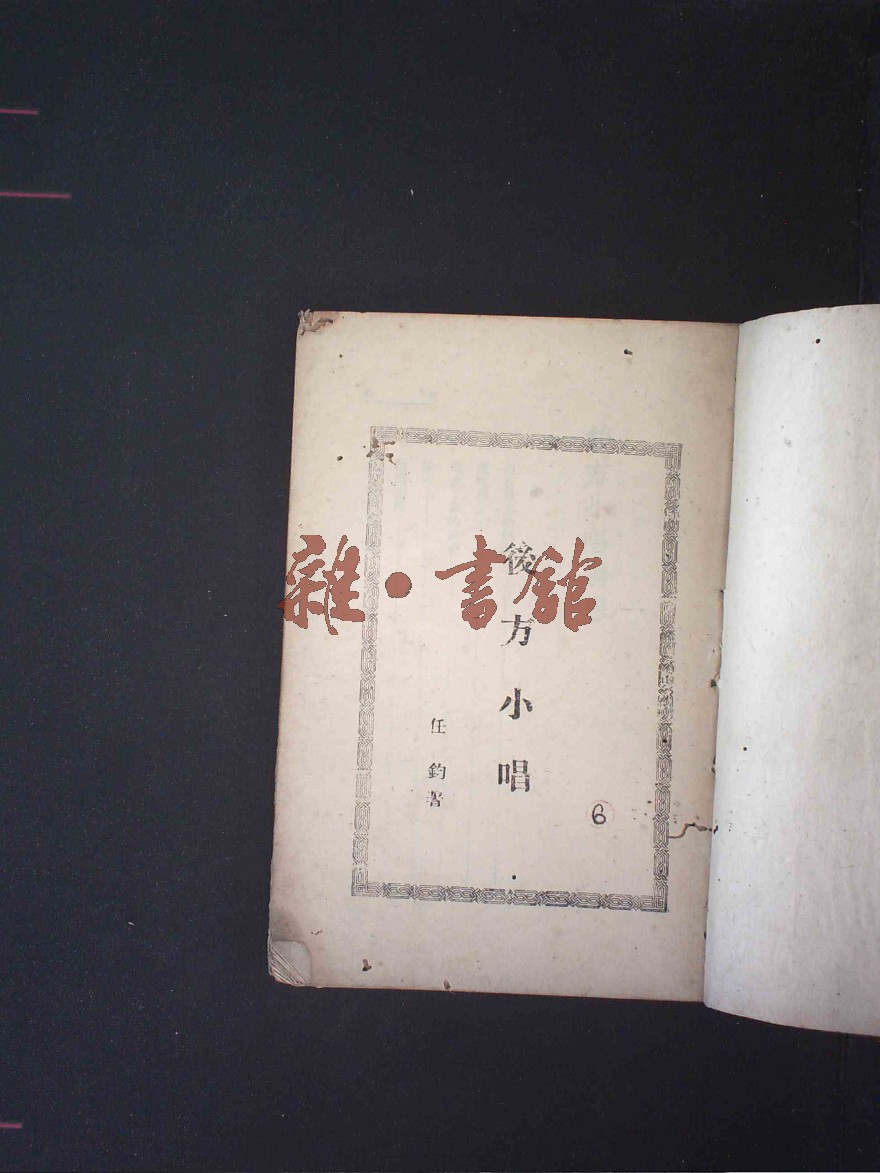 後方小唱
任鈞著
6
雜·書舘